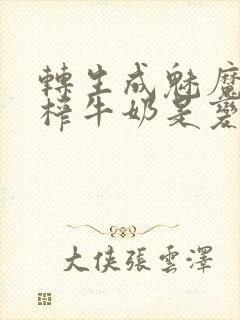 轉生成魅魔
榨牛奶是變
大俠張雲澤